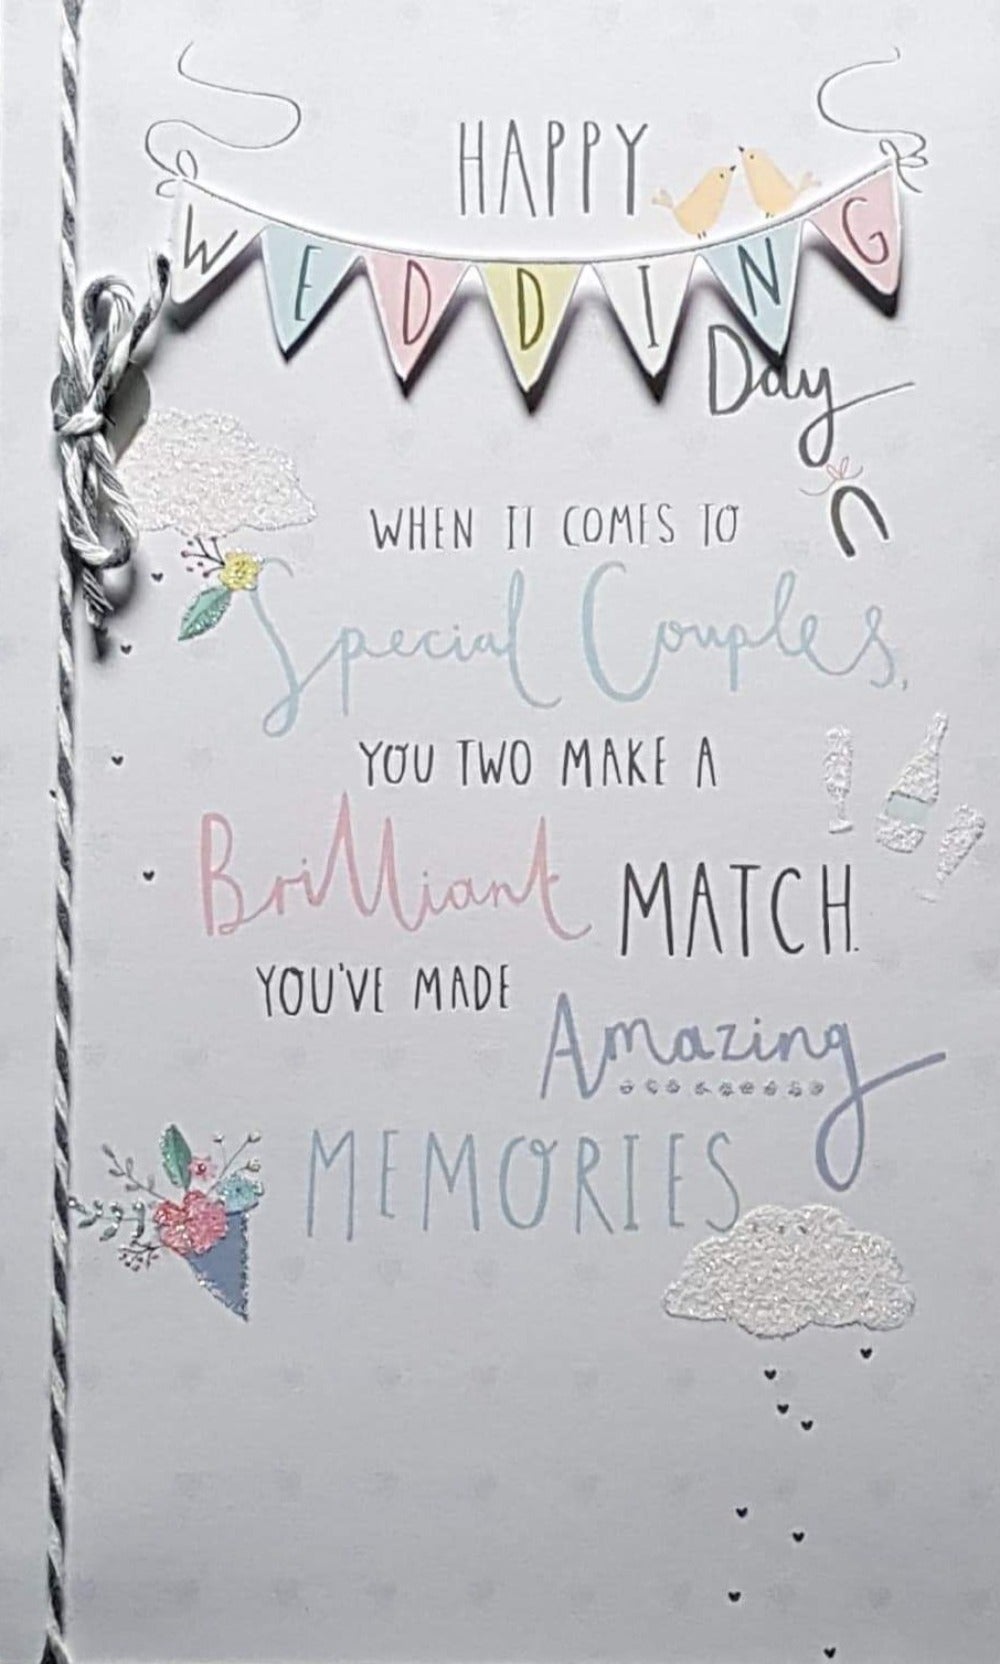 HAPPY
WEDDING
Day
WHEN IT COMES TO
Special Couples,
YOU TWO MAKE A
Brilliant MATCH.
YOU'VE MADE
Amazing
MEMORIES